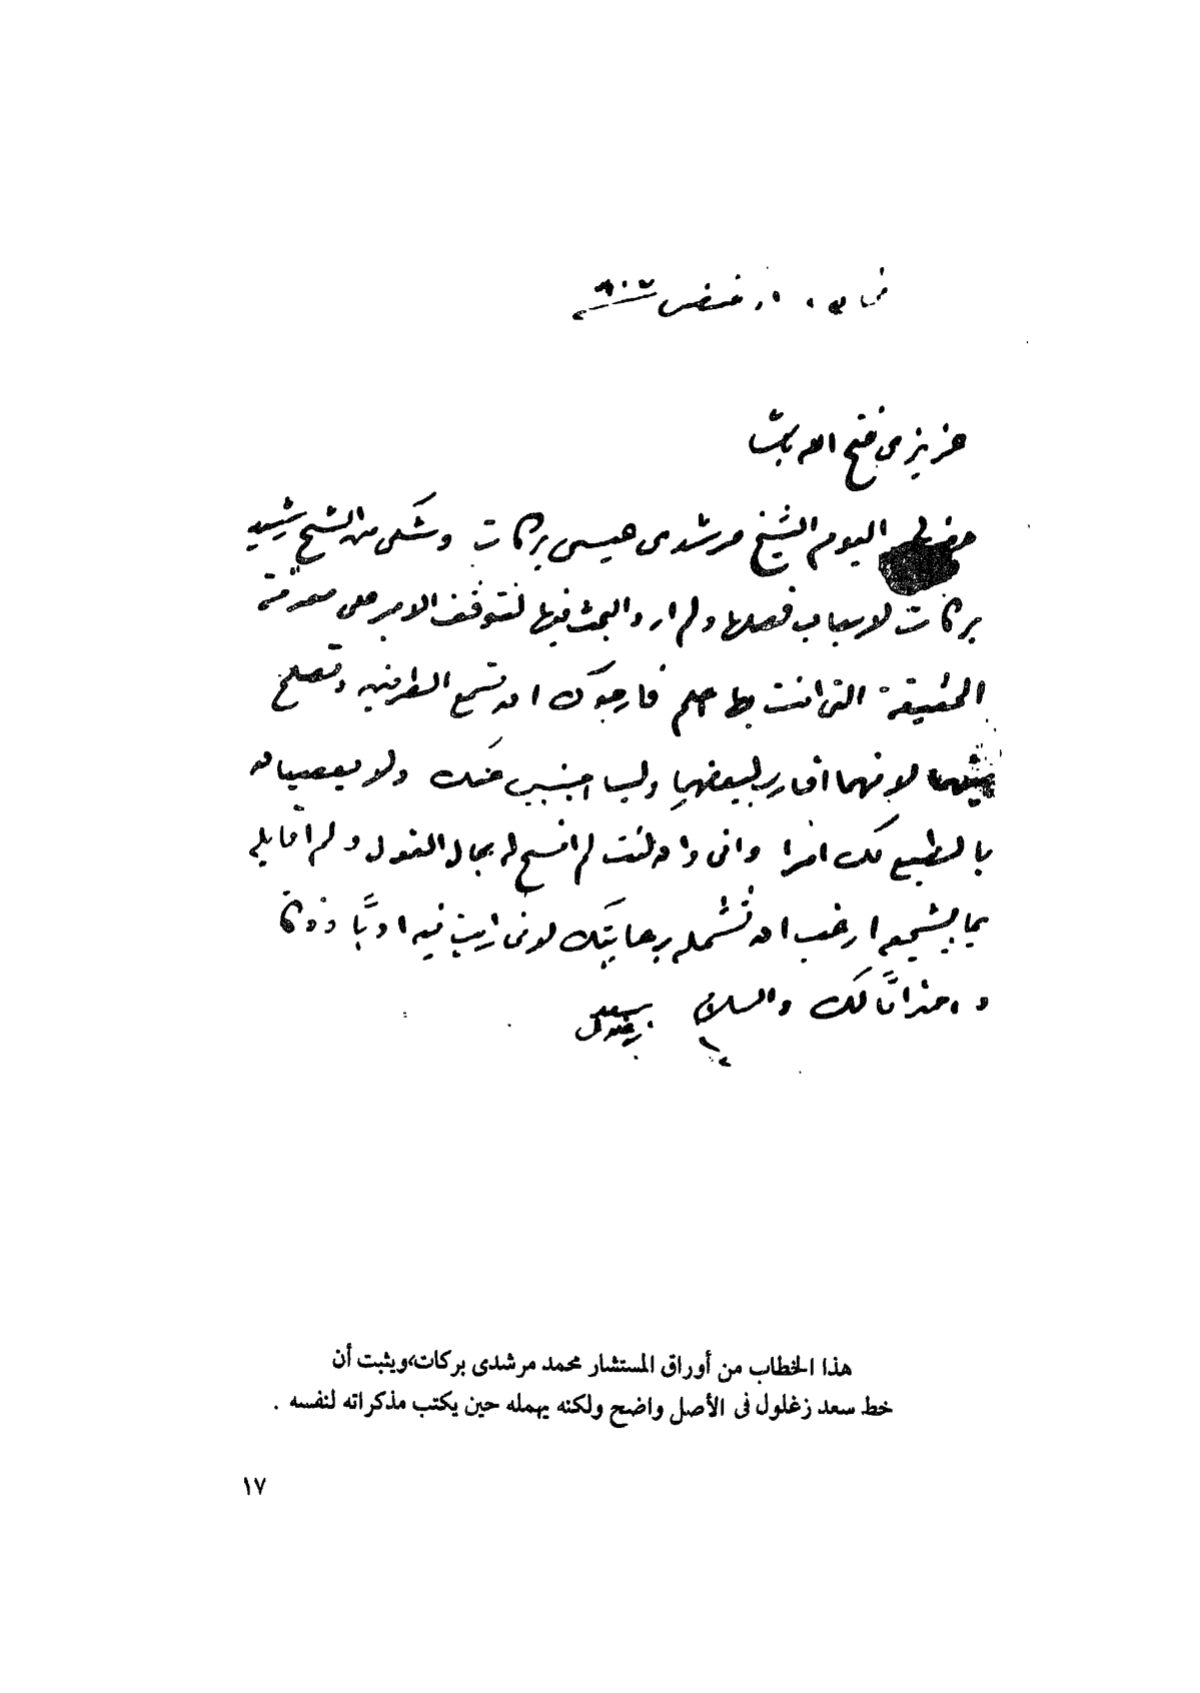 اغسطس ٩٠٧
عزيزى فتح الله باشا
حضر لى اليوم الشيخ مرشدى عيسى بركات وشكى من الشيخ رشيد
بركات لاسباب فصلها ولم ارد البحث فيها لتوقف الامر على معرفة
الحقيقة التى انت بها اعلم فارجوك ان تسمع الطرفين وتصلح
بينهما لانهما اقارب لبعضهما وليسا اجنبيين عنك ولا يعصيان
بالطبع لك امرا وانى وان كنت لم افسح له مجال القول ولم اقابله
بما يشجعه ارغب ان تشمله برعايتك لانى رايت فيه ادبًا وذوقا
واحترامًا لك والسلام سعد زغلول
هذا الخطاب من أوراق المستشار محمد مرشدى بركات،ويثبت أن
خط سعد زغلول فى الأصل واضح ولكنه يهمله حين يكتب مذكراته لنفسه .
١٧